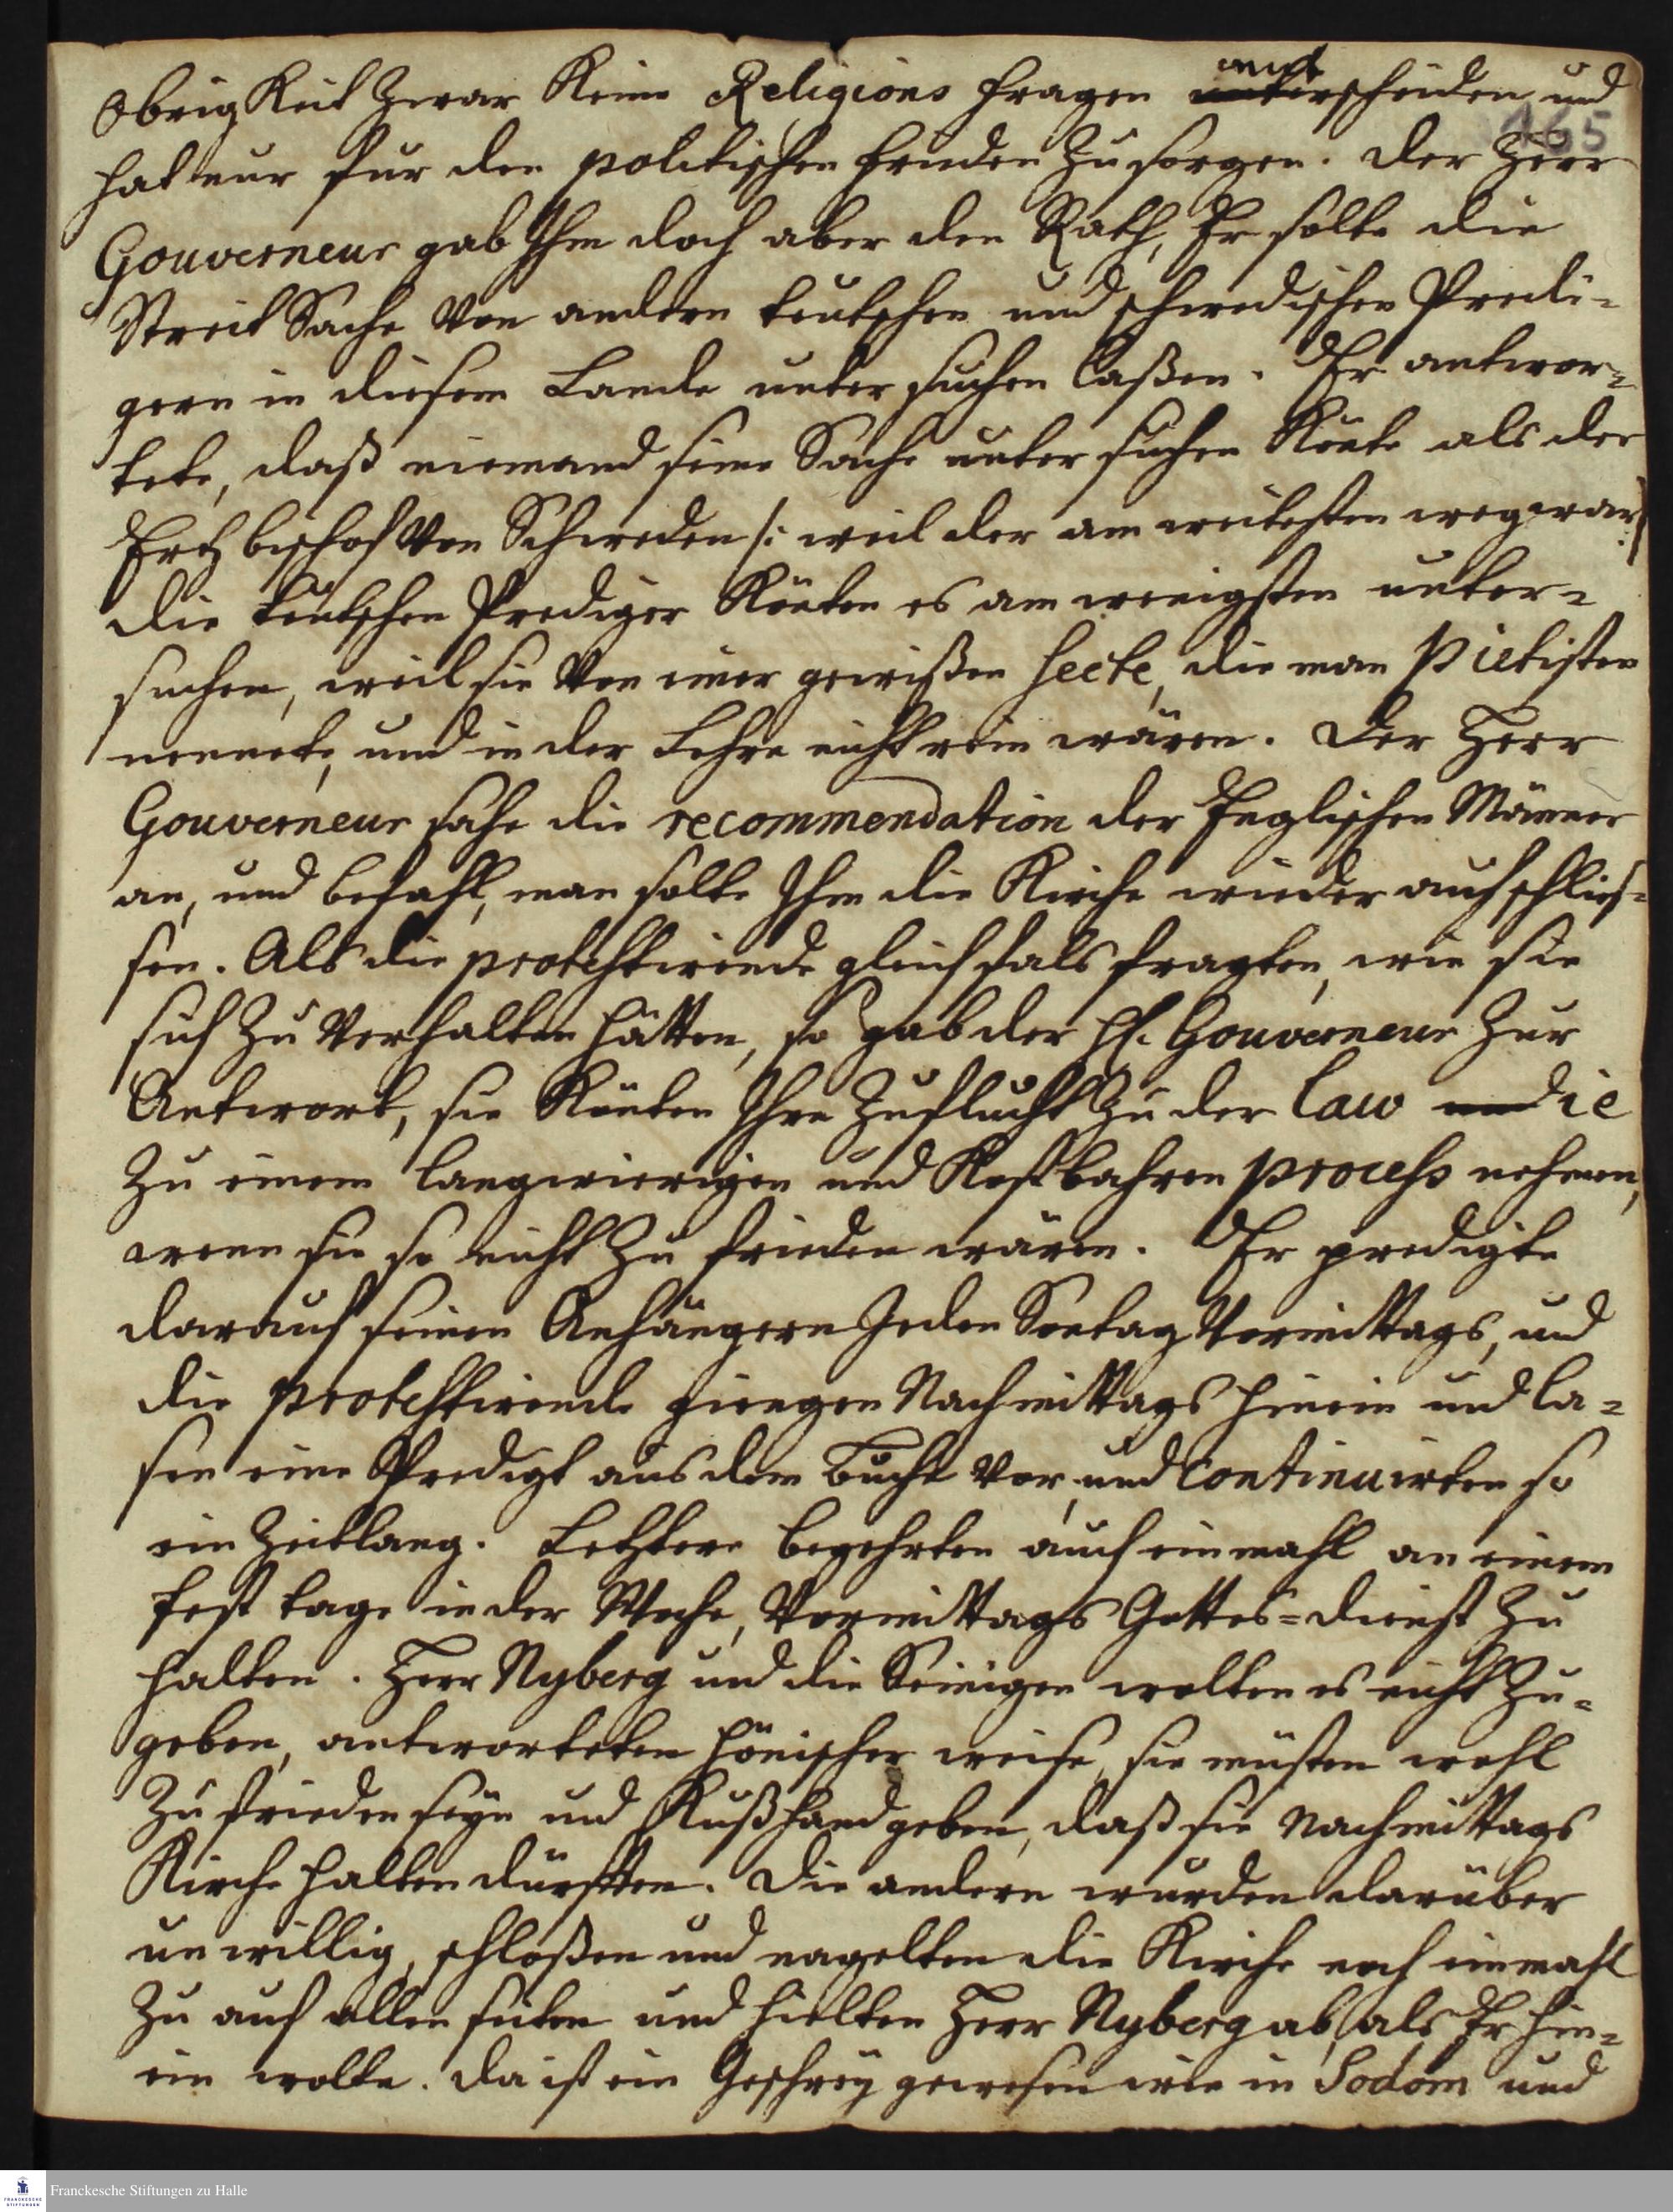 Obrigkeit zwar keine Religions fragen entscheiden und
165
hat nur fur den politischen frieden zu sorgen. Der Herr
Gouverneur gab Ihm doch aber den Rath, Er solte die
Streit Sache von andern teutschen und schwedischen Predi-
gern in diesem Lande unter suchen laßen. Er antwor-
tete, daß niemand seine Sache unter suchen könte als der
Ertzbischof von Schweden /: weil der am weitesten weg war :/
die teutschen Prediger könten es am wenigsten unter-
suchen, weil sie von einer gewißen secte, die man Pietisten
nennete, und in der Lehre nicht rein wären. Der Herr
Gouverneur sahe die recommendation der Englischen Männer
an, und befahl, man solte Ihm die Kirche wieder aufschlies-
sen. Als die protestirende gleichfals fragten, wie sie
sich zu verhalten hätten, so gab der H. Gouverneur zur
Antwort, sie könten Ihre Zuflucht zu der law die
zu einem langwierigen und kostbahren process nehmen,
wenn sie so nicht zu frieden wären. Er predigte
darauf seinen Anhängern Jeden Sontag Vormittags, und
die protestirende giengen Nachmittags hinein und la-
sen eine Predigt aus dem Buche vor, und continuirten so
ein Zeitlang. Letztere begehrten auch einmahl an einem
fest tage in der Woche, Vormittags Gottes-dienst zu
halten. Herr Nyberg und die Seinigen wolten es nicht zu-
geben, antworteten hönischer weise, sie müsten wohl
zu frieden seyn und Kußhand geben, daß sie Nachmittags
Kirche halten dürften. Die andern wurden darüber
unwillig, schloßen und nagelten die Kirche noch einmahl
zu auf allen seiten und hielten Herr Nyberg ab, als Er hin-
ein wolte. Da ist ein Geschrey gewesen wie in Sodom und
FRANCKESCHE STIFTUNGEN
Franckesche Stiftungen zu Halle